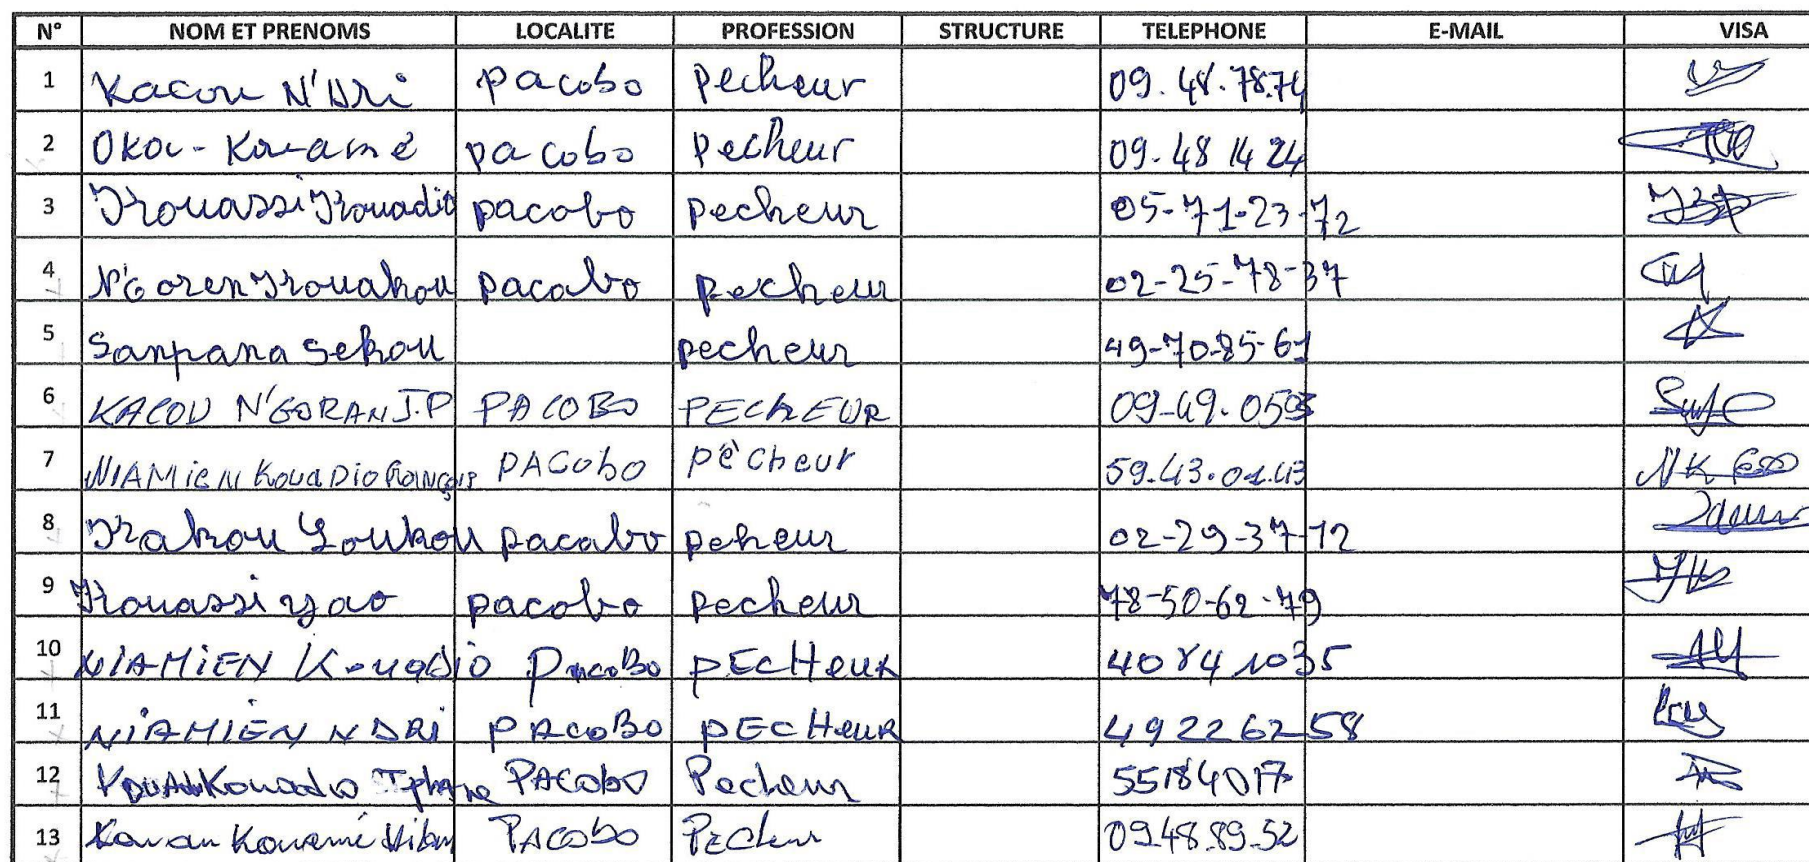 N° NOM ET PRENOMS LOCALITE PROFESSION STRUCTURE TELEPHONE E-MAIL VISA
1 Kacou N'Dri pacobo pecheur 09.48.78.74
2 OKOU-Kouamé pacobo pecheur 09.48 14 24
3 Kouassi Kouadio pacobo pecheur 05-71-23-72
4 N'Goren Kouakou pacobo pecheur 02-25-78-37
5 Sanpana Sekou pecheur 49-70-85-61
6 KACOU N'GORAN J.P PACOBO PECHEUR 09-49.05
7 NIAMIEN KOUADIO François PACOBO pêcheur 59.43.01.43
8 Kakou Loukou pacobo peheur 02-29-37-12
9 Kouassi yao pacobo pecheur 78-50-62-79
10 NIAMIEN Kouadio PACOBO PECHEUR 40 84 1035
11 NIAMIEN N DRI PACOBO PECHEUR 49 22 62 58
12 Kouadio PACOBO Pecheur 55184017
13 Kouamé PACOBO Pecheur 09.48.89.52